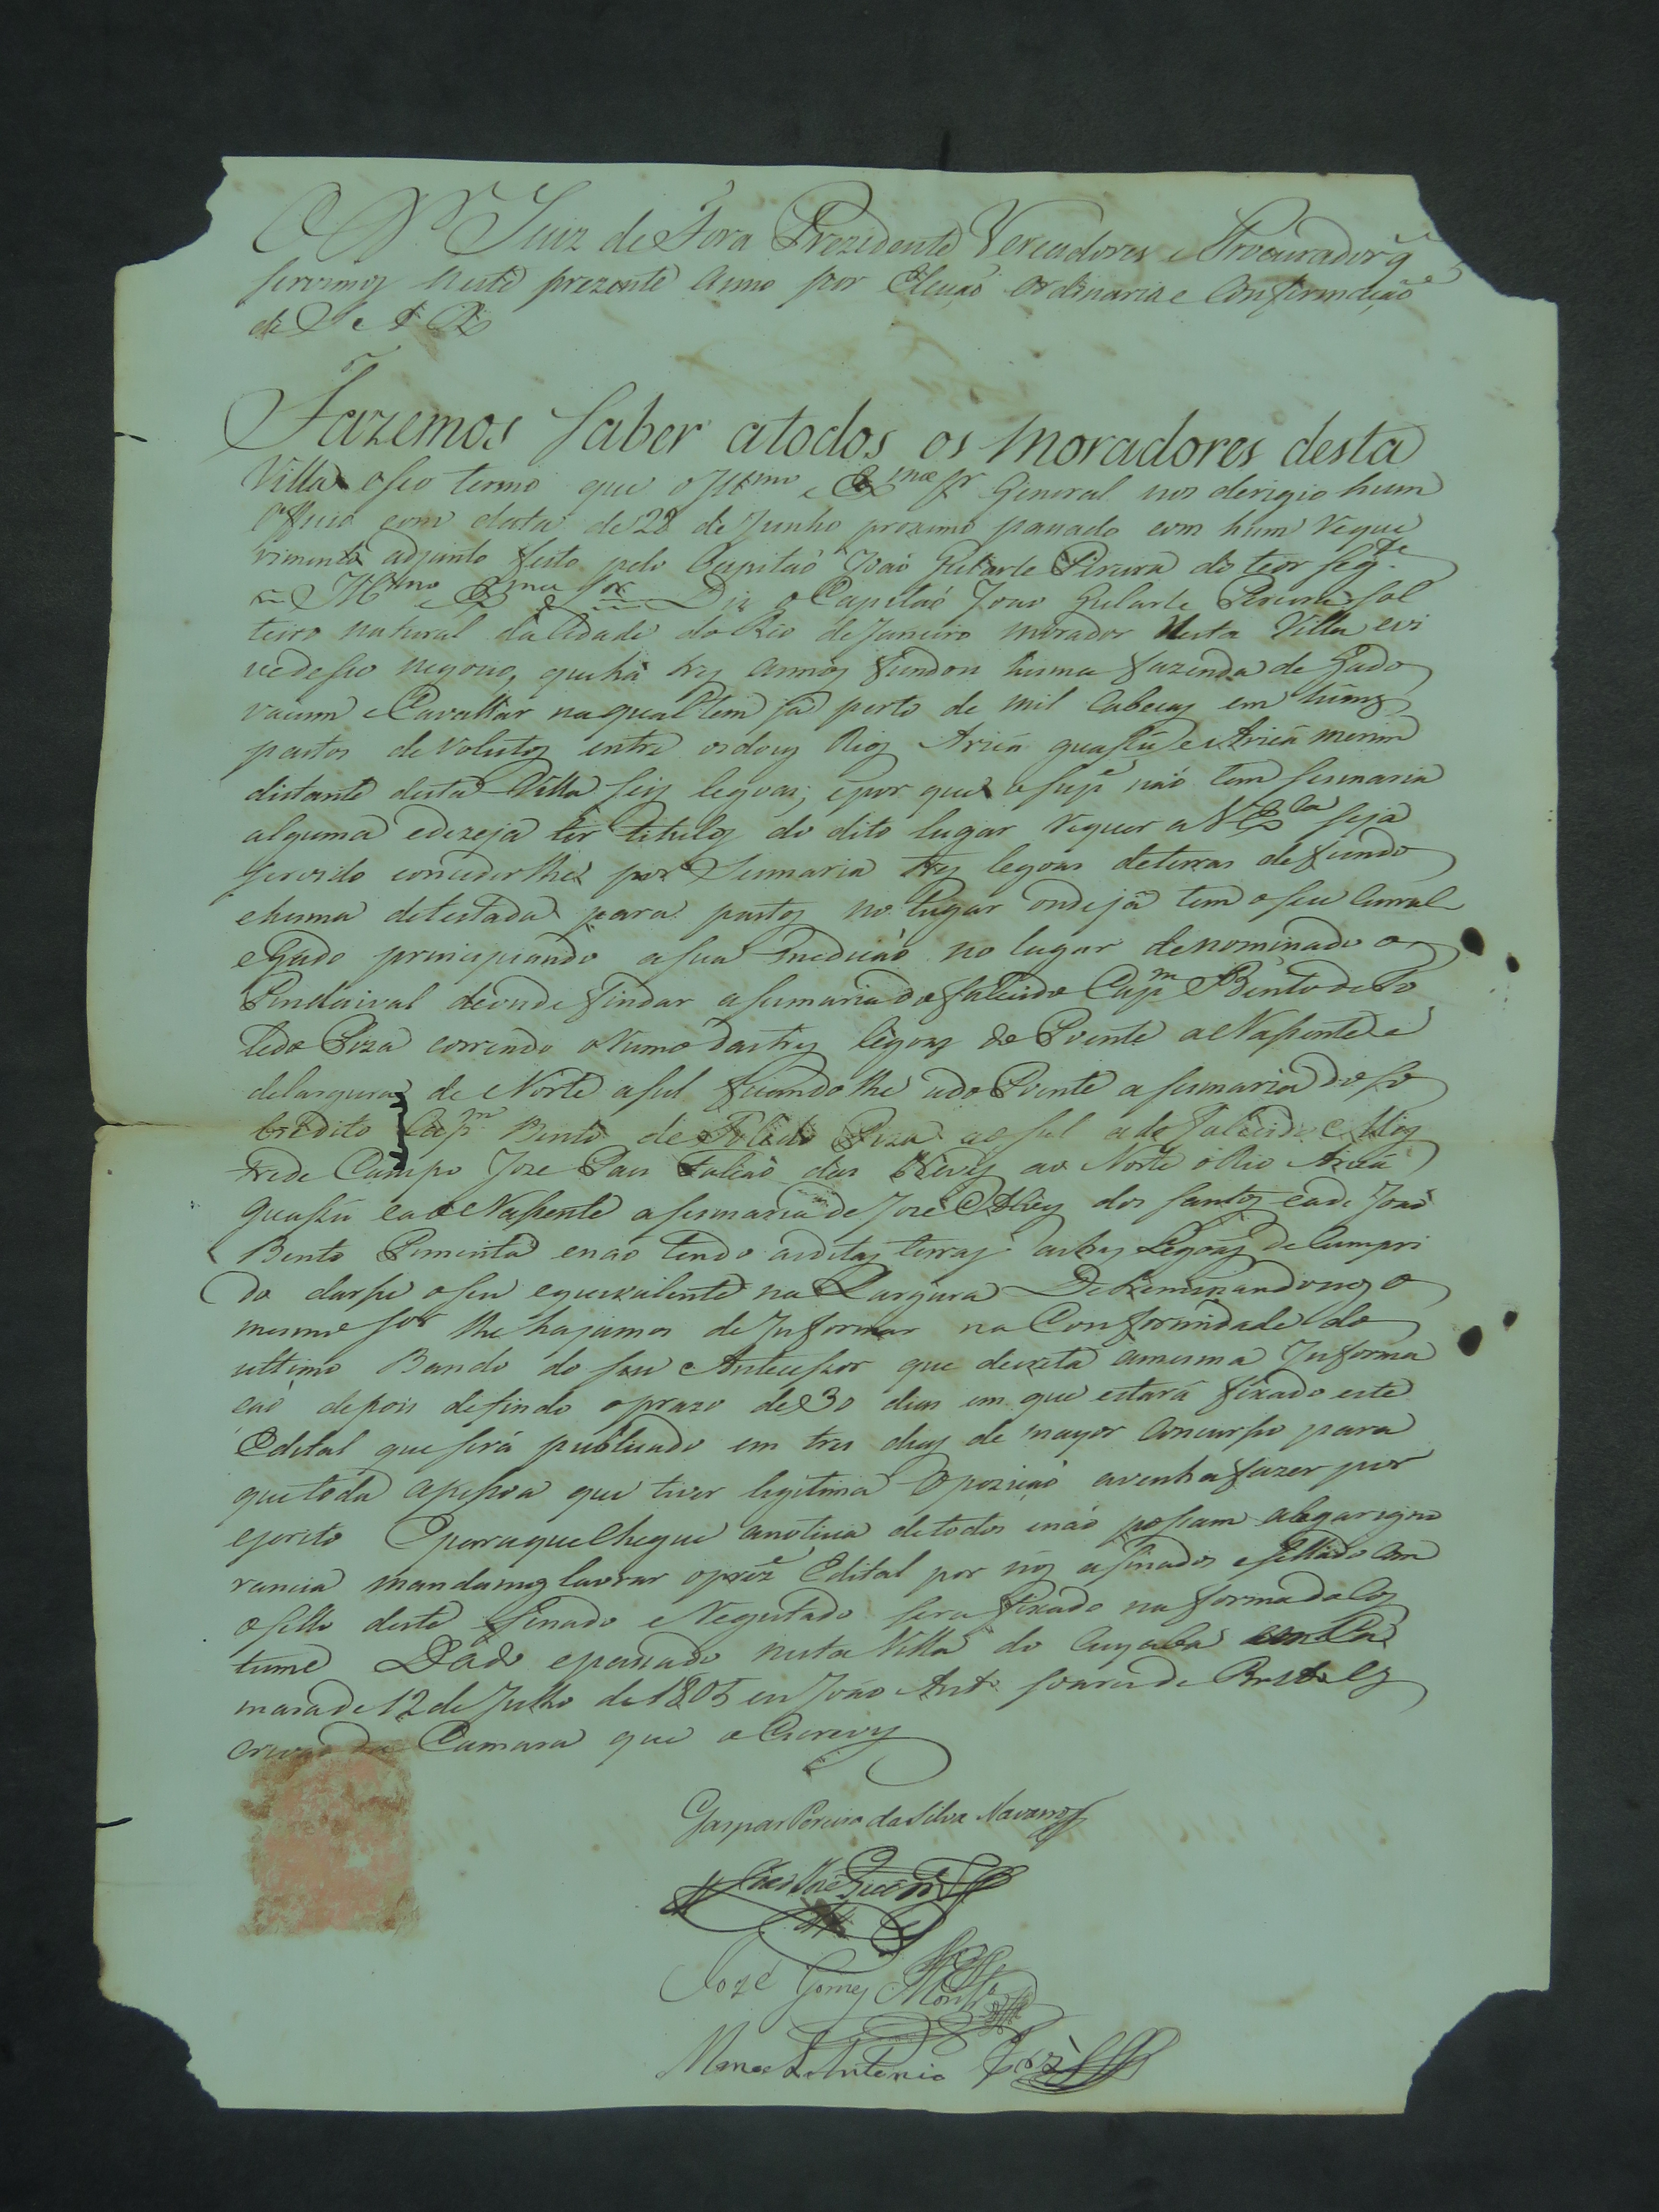 O Dr. Juiz de Fora Prezidente Vereadores e Procurador q
servimos neste prezente Anno por Eleição Ordinaria e Confirmação
de S A R
Fazemos saber atodos os moradores desta
Villa eseo termo que o Illmo e Exmo Sr General nos derigio hum
Officio com data de 28 de Junho proximo passado com hum reque
rimento adjunto feito pelo Capitaõ Joaõ Gularte Pereira do teor segte
Illmo e Exmo Sor Diz o Capitaõ Joaõ Gularte Pereira sol
teiro natural da Cidade do Rio de Janeiro morador nesta Villa evi
ve deseo negocio, que há tres annos fundou huma fazenda de Gado
vacum e Cavallar na qual tem já perto de mil Cabeças em huns
pastos devolutos entre os dous Rios Aricá guassú e Aricá merim
distante desta Villa seis legoas; e por que o supe naõ tem sesmaria
alguma edezeja ter titulos do dito lugar requer a V Exca seja
servido concederlhe por Sesmaria tres legoas deterras de fundo
ehuma detestada para pastos no lugar onde já tem o seu Curral
e Gado principiando a sua mediçaõ no lugar denominado o
Pindaival deonde findar a sesmaria do falecido Capm Bento de To
ledo Piza correndo o rumo das tres legoas de Poente a Nassente e
delargura de Norte a sul ficandolhe ado Poente a sesmaria do so
bredito Capm Bento de Toledo Piza ao sul a do falecido Mes
tre de Campo Joze Paes Falcaõ das Neves ao Norte o Rio Aricá
Guassú e ao Nassente a sesmaria de José Alves dos Santos ea de Joaõ
Bento Pimenta enaõ tendo asditas terras as tres Legoas de Cumpri
do darse o seu equivalente na Largura Determinandonos o
mesmo Sor lhe hajamos de Informar na Conformidade do
ultimo Bando do seu Antecessor que decreta amesma Informa
çaõ depois de findo o prazo de 30 dias em que estará fixado este
Edital que será publicado em tres dias de mayor Concurso para
que toda apessoa que tiver legitima Opoziçaõ avenha fazer por
escrito E para que chegue anoticia detodos enaõ possam alegar igno
rancia mandamos lavrar o preze Edital por nós assinados e sellado com
o sello deste Senado e Registado sera fixado na forma do Cos
tume Dado epassado nesta Villa do Cuyabá em Ca
mara de 12 de Julho de 1805 eu Joaõ Anto Soares de Es
crivaõ da Camara que o Escrevy
Gaspar Pereira da Silva Navarro
José Gomes
Manoel Antonio